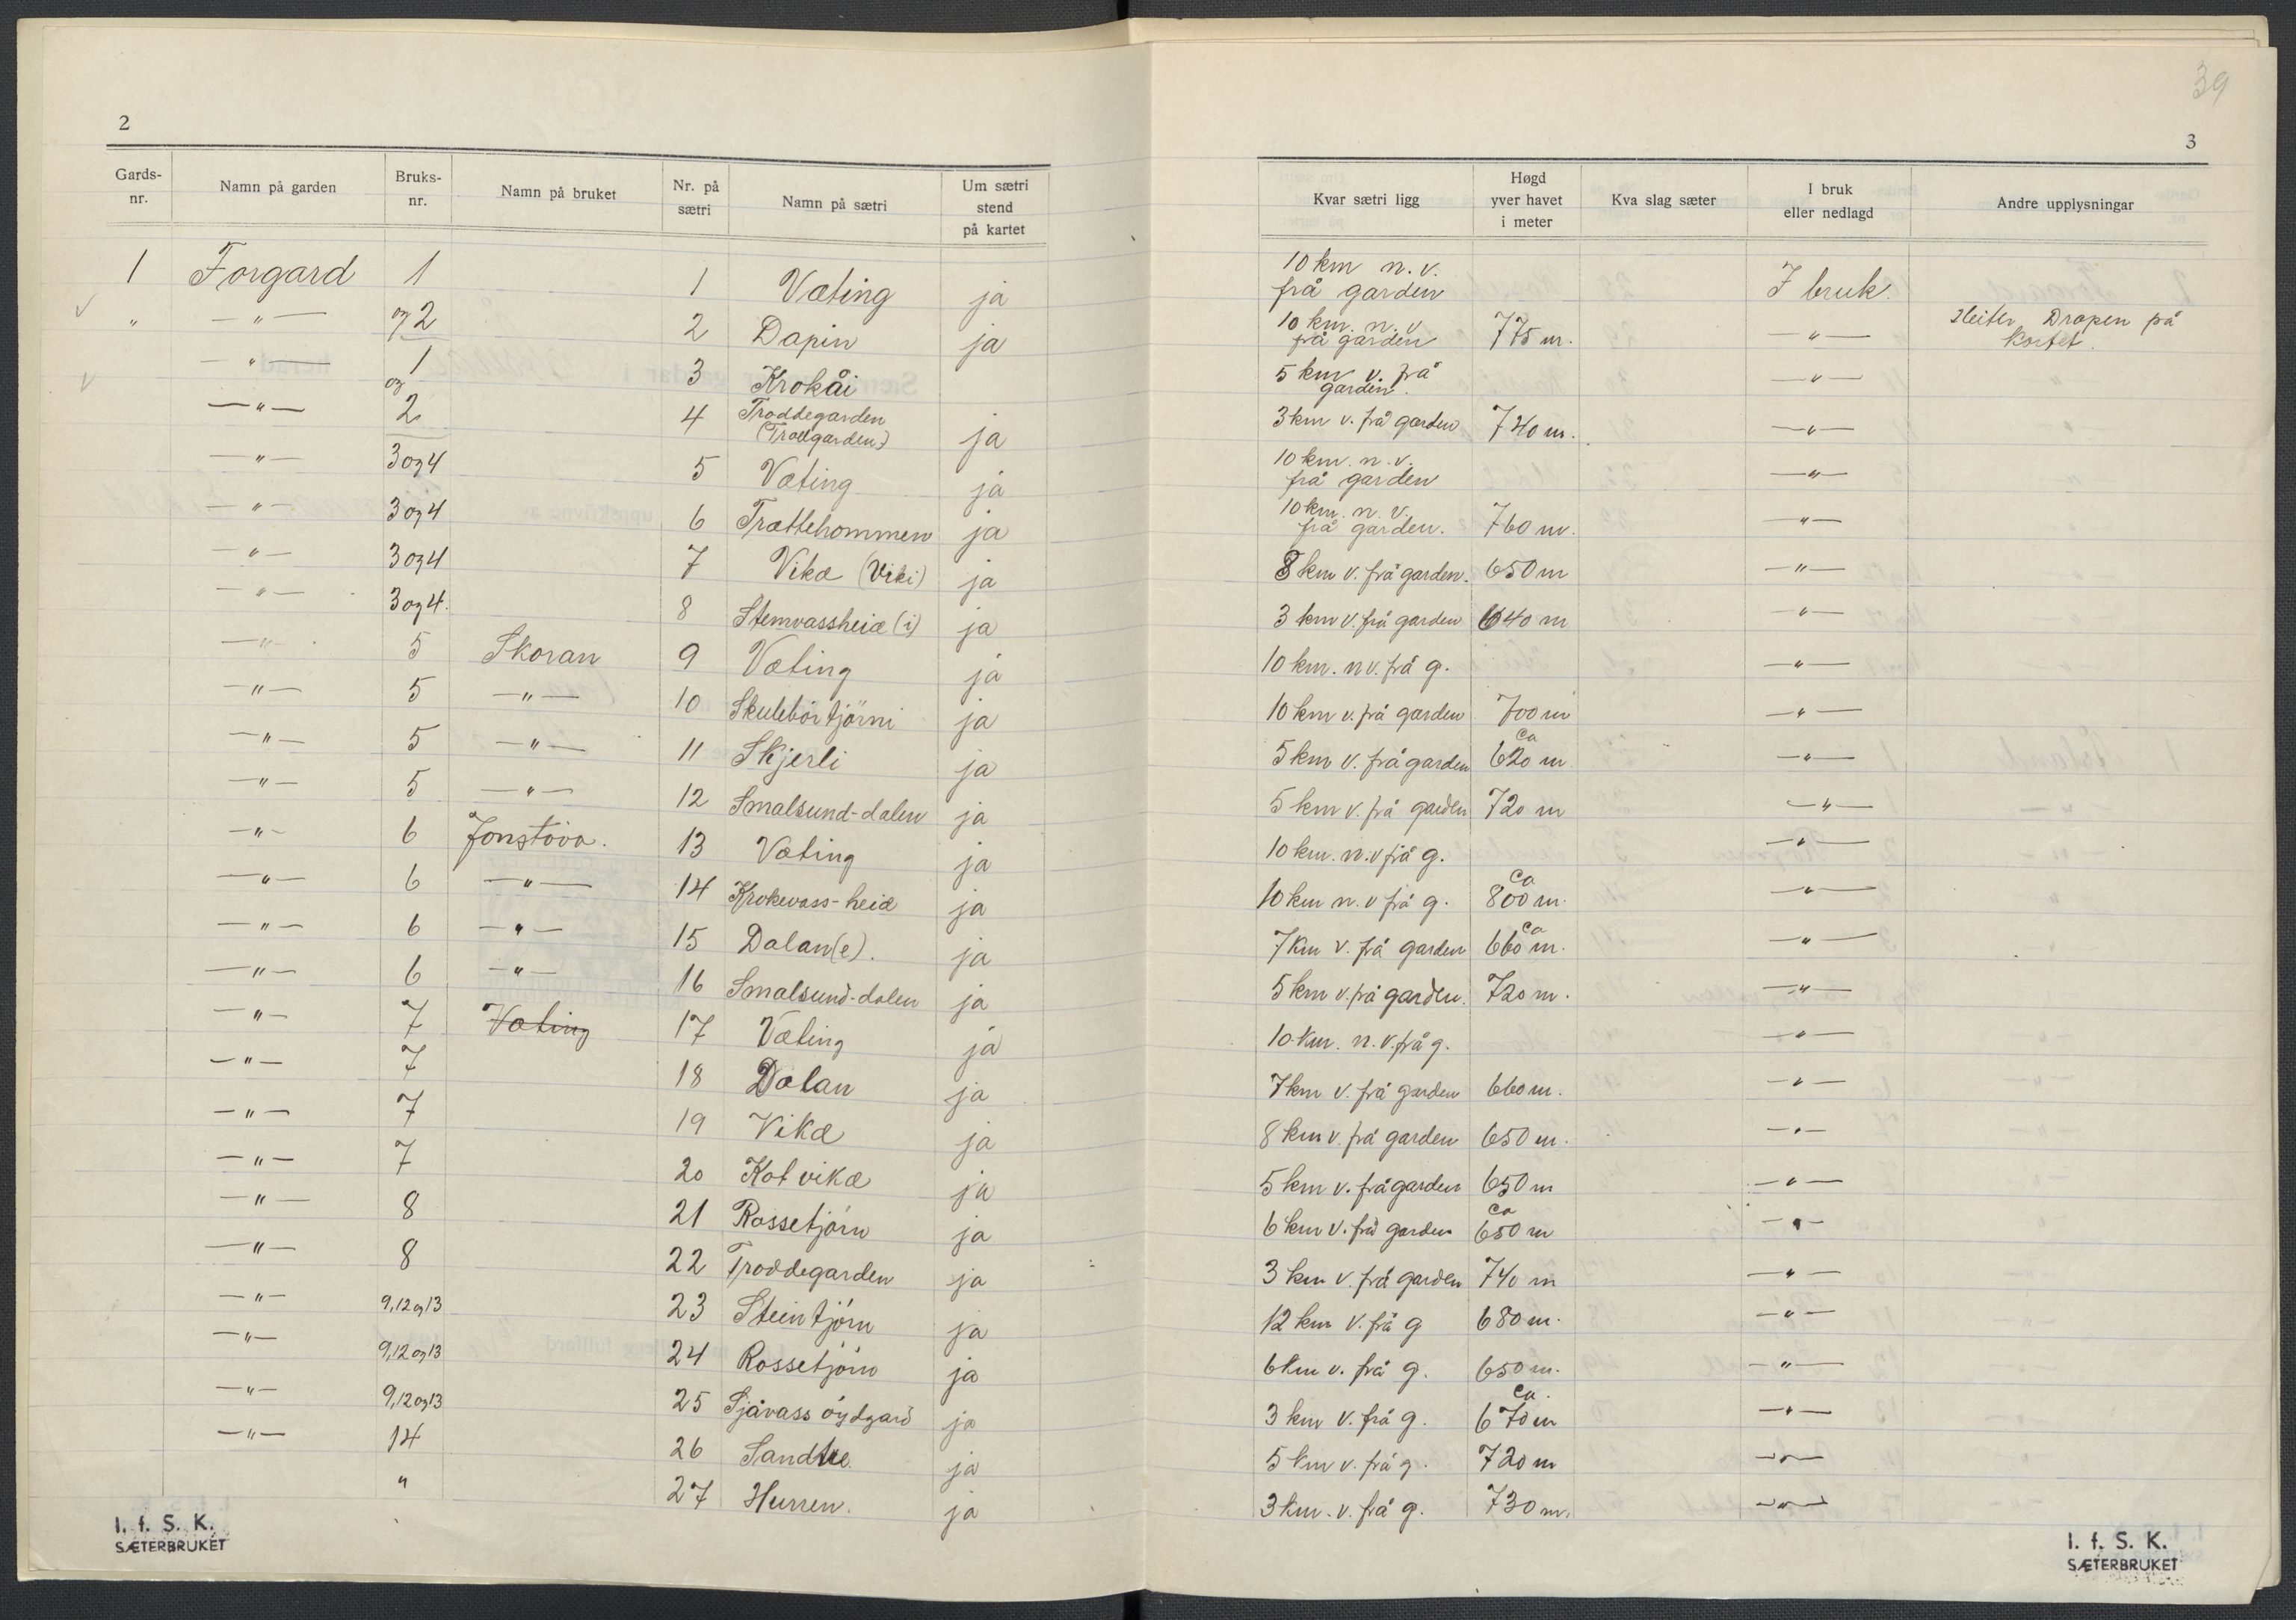 2
Gards-nr. Namn på garden Bruks-nr. Namn på bruket Nr. på sætri Namn på sætri Um sætri stend på kartet
1 Forgard 1 1 Væting ja
" —"— og 2 2 Dapin ja
—"— 1 3 Krokåi
—"— og 2 4 Troddegarden (Trollgarden) ja
—"— 3 og 4 5 Væting ja
—"— 3 og 4 6 Trættehommen ja
—"— 3 og 4 7 Vikæ (Viki) ja
—"— 3 og 4. 8 Stemvassheiæ (i) ja
—"— 5 Skoran 9 Væting ja
—"— 5 —"— 10 Skulebörtjörni ja
—"— 5 —"— 11 Skjerli ja
—"— 5 —"— 12 Smalsund-dalen ja
—"— 6 Jonstöva. 13 Væting ja
—"— 6 —"— 14 Krokevass-heiæ ja
—"— 6 —"— 15 Dalan(e). ja
—"— 6 —"— 16 Smalsund-dalen ja
—"— 7 Væting 17 Væting ja
—"— 7 18 Dalan ja
—"— 7 19 Vikæ ja
—"— 7 20 Kotvikæ ja
—"— 8 21 Rossetjörn ja
—"— 8 22 Troddegarden ja
—"— 9, 12 og 13 23 Steintjörn ja
—"— 9, 12 og 13 24 Rossetjörn ja
—"— 9, 12 og 13 25 Sjåvass öydgard ja
—"— 14 26 ja
" 27 Hurren. ja
I. f. S. K.
SÆTERBRUKET
39
3
Kvar sætri ligg Høgd yver havet i meter Kva slag sæter I bruk eller nedlagd Andre upplysningar
10 km n. v. frå garden I bruk.
10 km. n. v frå garden 775 m. —"— Heiter Drapen på kortet.
5 km v. frå garden. —"—
3 km v. frå garden 740 m. —"—
10 km. n. v. frå garden —"—
10 km. n. v. frå garden. 760 m. —"—
8 km v. frå garden. 650 m —"—
3 km v. frå garden 640 m —"—
10 km. n v. frå g. —"—
10 km v. frå garden 700 m —"—
5 km v. frå garden ca 620 m —"—
5 km v. frå garden 720 m —"—
10 km. n. v frå g. —"—
10 km n. v frå g. ca 800 m. —"—
7 km v. frå garden ca 660 m. —"—
5 km v. frå garden. 720 m. —"—
10 km. n. v. frå g. —"—
7 km v. frå garden 660 m. —"—
8 km v. frå garden 650 m. —"—
5 km v. frå garden 650 m —"—
6 km v. frå garden ca 650 m —"—
3 km v. frå garden 740 m —"—
12 km v. frå g 680 m. —"—
6 km v. frå g. 650 m. —"—
3 km v. frå g. ca. 670 m —"—
5 km v. frå g. 720 m —"—
3 km. v. frå g. 730 m. —"—
I. f. S. K.
SÆTERBRUKET